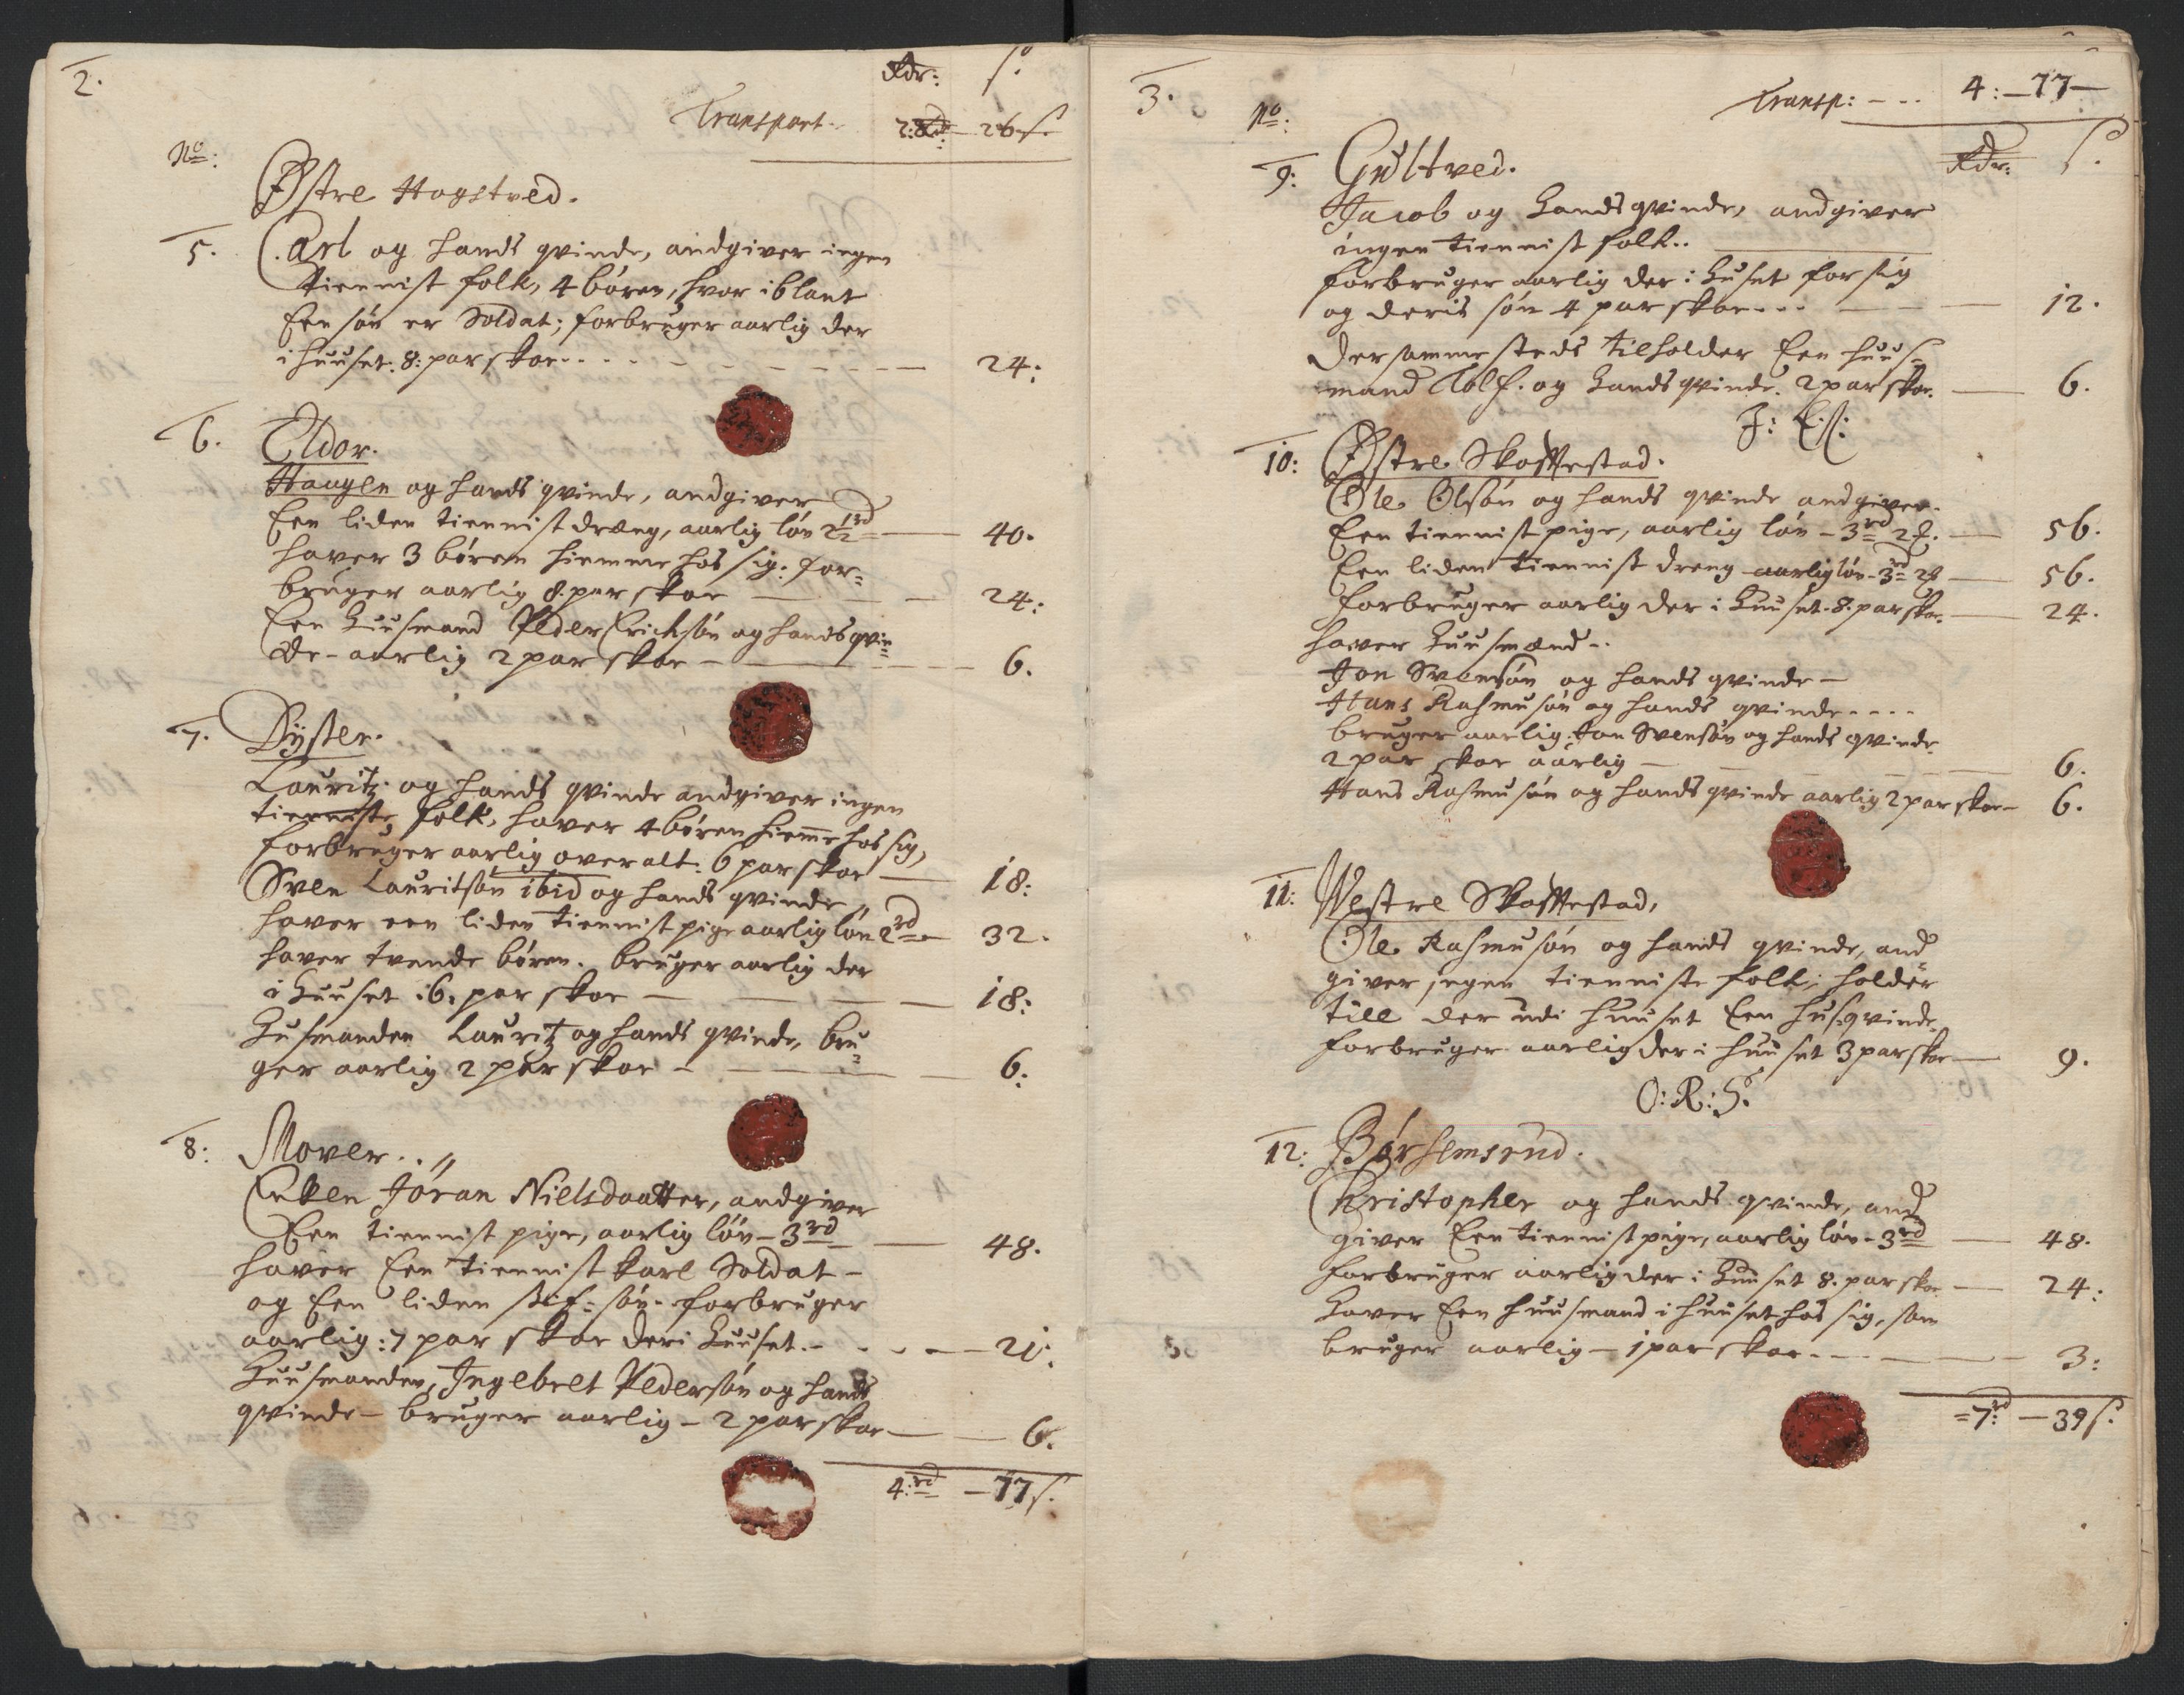 2.
Rdr: s.
Transport. 2: Rd: 26 s.
No:
Østre Hogstved.
5. Carl og hands qvinde, andgiver ingen
tiennist folk, 4 bören, hvor iblant
Een sön er Soldat; forbruger aarlig der
i huuset. 8: par skoe.... 24:
6. Eldor.
Haagen og hands qvinde, andgiver
Een liden tiennist dræng, aarlig lön 2½ rd 40.
haver 3 bören hiemme hos sig. for=
bruger aarlig 8. par skoe 24:
Een Huusmand Peder Erichsön og hands qvin=
de - aarlig 2 par skoe 6.
7. Dÿster.
Lauritz og hands qvinde andgiver ingen
tienniste folk, haver 4 bören hiemme hos sig,
forbruger aarlig over alt: 6 par skoe 18:
Sven Lauritsön ibid og hands qvinde,
haver een liden tiennist pige aarlig lön 2 rd 32.
haver tvende bören. bruger aarlig der
i Huuset : 6. par skoe 18:
Husmanden Lauritz og hands qvinde, bru=
ger aarlig 2 par skoe 6:
8: Mover..
Enken Jöran Nielsdaatter, andgiver
Een tiennist pige, aarlig lön - 3 rd 48.
haver Een tiennist karl Soldat -
og Een liden stif= sön. forbruger
aarlig: 7 par skoe deri Huuset. 21:
Huusmanden, Ingebret Pedersön og hands
qvinde - bruger aarlig - 2 par skoe 6.
4: rd - 77 s.
3.
Transp: --- 4: - 77 -
No:
Rdr: s.
9: Gultved.
Jacob og Hands qvinde, andgiver
ingen tiennist folk..
forbruger aarlig der i Huset for sig
og deris sön 4 par skoe... 12.
der samme steds tilholder Een huus=
mand og Hands qvinde. 2 par skoe. 6.
10: Østre Skottestad.
Ole Olsön og hands qvinde andgiver.
Een tiennist pige, aarlig lön - 3 rd 56.
Een liden tiennist dreng aarlig lön - 3 rd 56.
forbruger aarlig der i Huuset. 8. par skoe. 24.
haver Huusmænd..
Jon Svensön og hands qvinde -
Hans Rasmusön og hands qvinde....
bruger aarlig. Jon Svensön og hands qvinde
2 par skoe aarlig 6.
Hans Rasmusön og hands qvinde aarlig 2 par skoe 6.
11: Westre Skottestad,
Ole Rasmusön og hands qvinde, and
giver ingen tienniste folk; holder
till der udi huuset Een husqvinde
forbruger aarlig der i huuset 3 par skoe 9.
O: R: S.
12: Börhemsrud.
Christopher og hands qvinde, and
giver Een tiennist pige, aarlig lön - 3 rd 48.
forbruger aarlig der i Huuset 8. par skoe 24:
Haver Een huusmand i huuset hos sig, som
bruger aarlig - 1 par skoe. 3:
= 7: rd - 39 s.